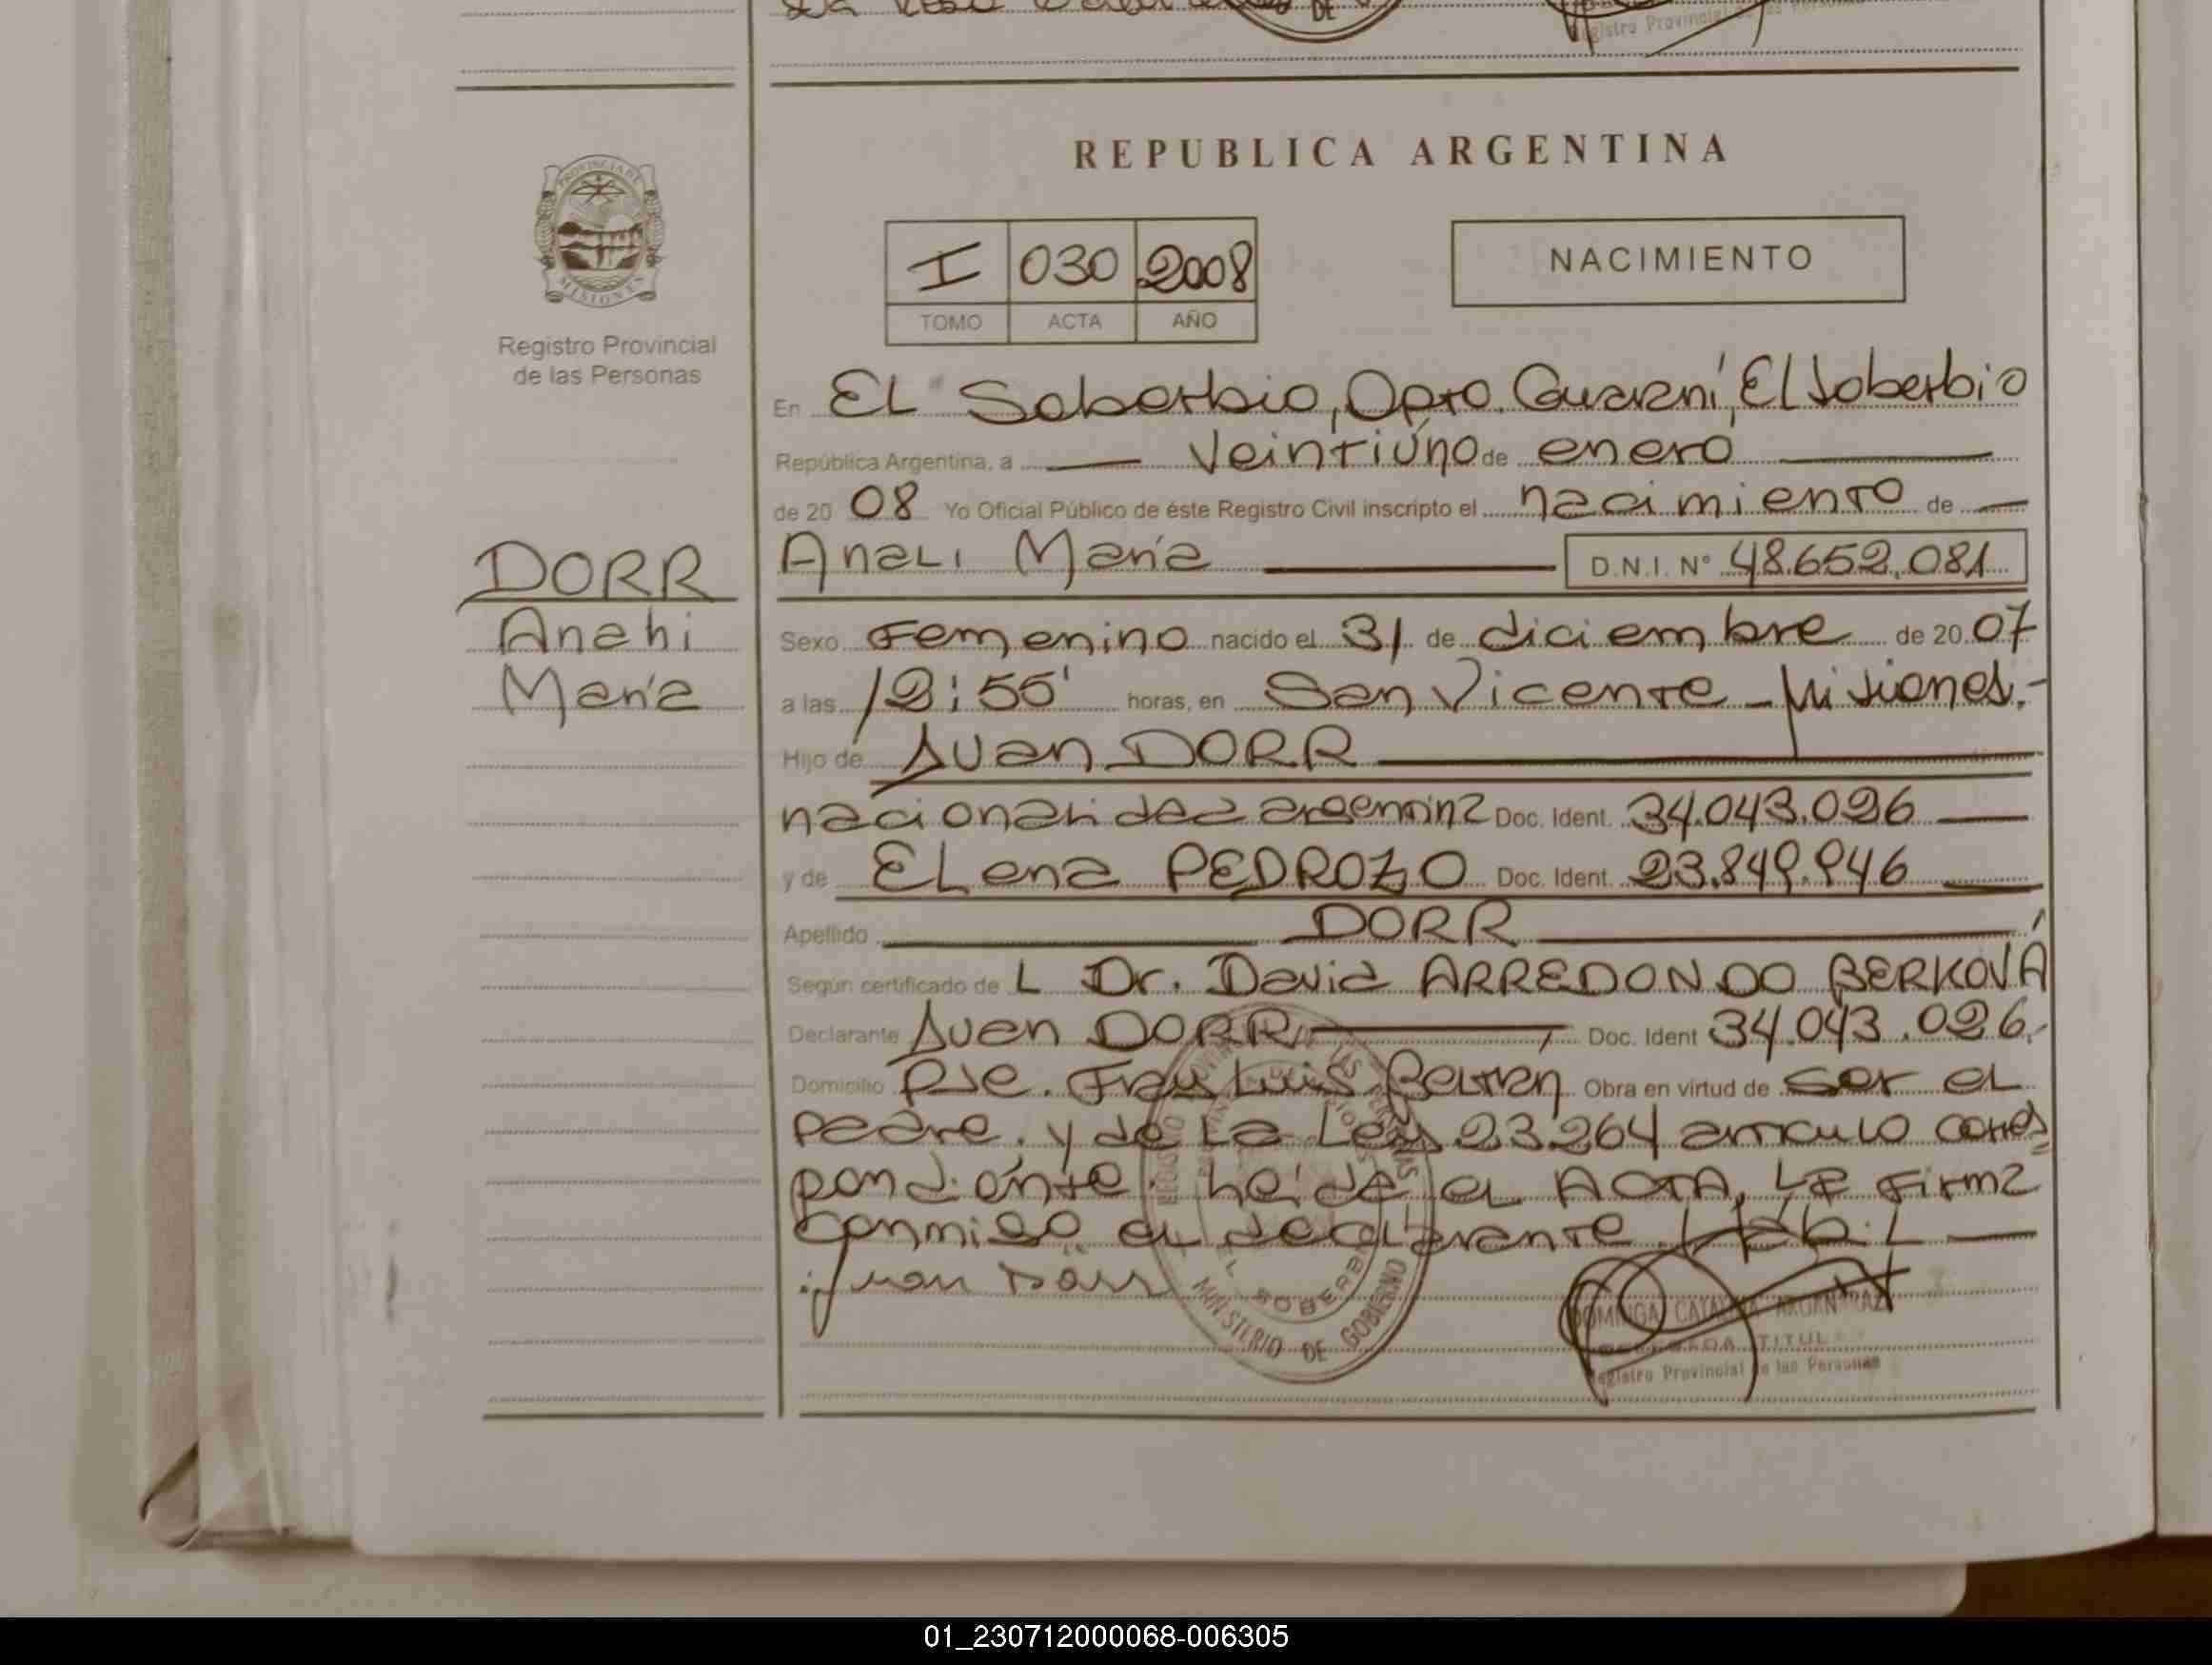 REPUBLICA ARGENTINA
PROVINCIA DE
MISIONES
Registro Provincial
de las Personas
I 030 2008
TOMO ACTA AÑO
NACIMIENTO
En EL Soberbio, Dpto. Guaraní, El Soberbio
República Argentina, a veintiuno de enero
de 20 08 Yo Oficial Público de éste Registro Civil inscripto el nacimiento de
DORR
Anahi
María
Anali María D.N.I. Nº 48.652.081
Sexo Femenino nacido el 31 de diciembre de 20 07
a las 12:55' horas, en San Vicente - Misiones.-
Hijo de Juan DORR
nacionalidad argentina Doc. Ident. 34.043.026
y de ELena PEDROZO Doc. Ident. 23.849.946
Apellido DORR
Según certificado de L Dr. David ARREDONDO BERKOVÁ
Declarante Juan DORR Doc. Ident 34.043.026.-
Domicilio Pje. Fray Luis Beltran Obra en virtud de ser el
padre, y de la Ley 23264 articulo corres
pondiente. Leida el ACTA, la firma
conmigo el declarante. Habil
juan Dorr
EL SOBERBIO
MINISTERIO DE GOBIERNO
DOMINGA CATALINA
TITUL
Registro Provincial de las Personas
01_230712000068-006305